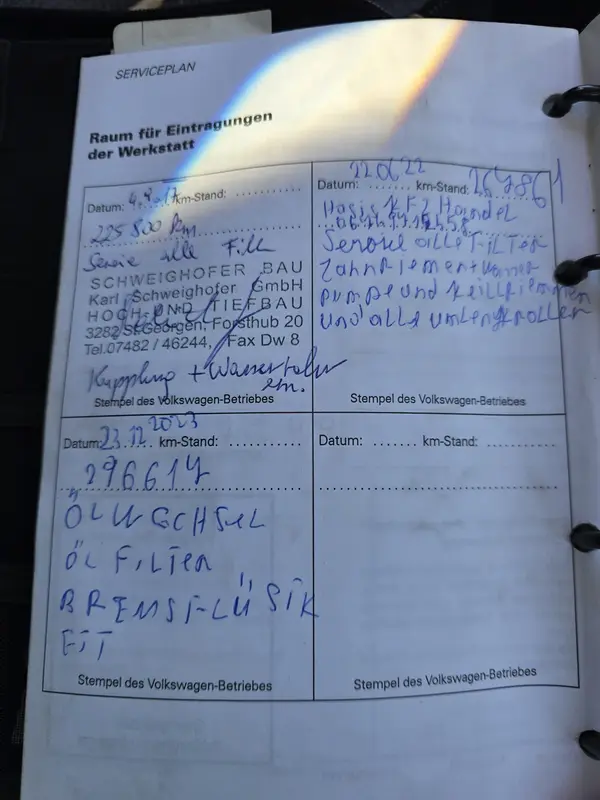 SERVICEPLAN
Raum für Eintragungen
der Werkstatt
Datum: 4.8.17 km-Stand: ...........
225 800 km
Servie alle Filt
SCHWEIGHOFER BAU
Karl Schweighofer GmbH
HOCH- UND TIEFBAU
3282 St.Georgen, Forsthub 20
Tel.07482 / 46244, Fax Dw 8
Kupplung + Wasserkühler
ern.
Stempel des Volkswagen-Betriebes
Datum: 220622 km-Stand: 267861
KFZ Handel
Servive alle FilTer
Zahnriemen + Wasser
pumpe und Keilriemen
und alle umlenkrollen
Stempel des Volkswagen-Betriebes
Datum: 23.12.2023 km-Stand: ...........
296617
ÖLWECHSEL
ÖL FILTER
BREMSFLÜSIK
EIT
Stempel des Volkswagen-Betriebes
Datum: ....... km-Stand: ...........
Stempel des Volkswagen-Betriebes